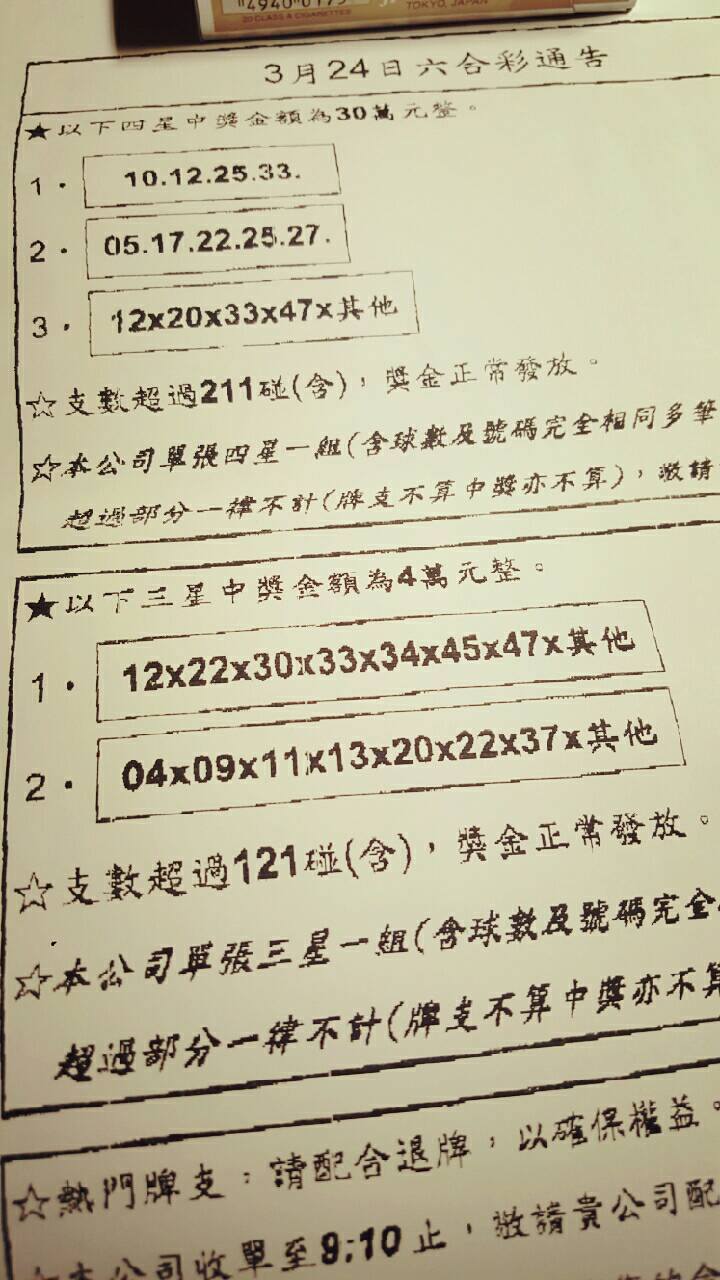 20 CLASS A CIGARETTES
TOKYO, JAPAN
3月24日六合彩通告
★以下四星中獎金額為30萬元整。
1. 10.12.25.33.
2. 05.17.22.25.27.
3. 12x20x33x47x其他
☆支數超過211碰(含)，獎金正常發放。
☆本公司單張四星一組(含球數及號碼完全相同多筆
超過部分一律不計(牌支不算中獎亦不算)，敬請
★以下三星中獎金額為4萬元整。
1. 12x22x30x33x34x45x47x其他
2. 04x09x11x13x20x22x37x其他
☆支數超過121碰(含)，獎金正常發放。
☆本公司單張三星一組(含球數及號碼完全
超過部分一律不計(牌支不算中獎亦不算
☆熱門牌支：請配合退牌，以確保權益。
本公司收單至9:10止，敬請貴公司配